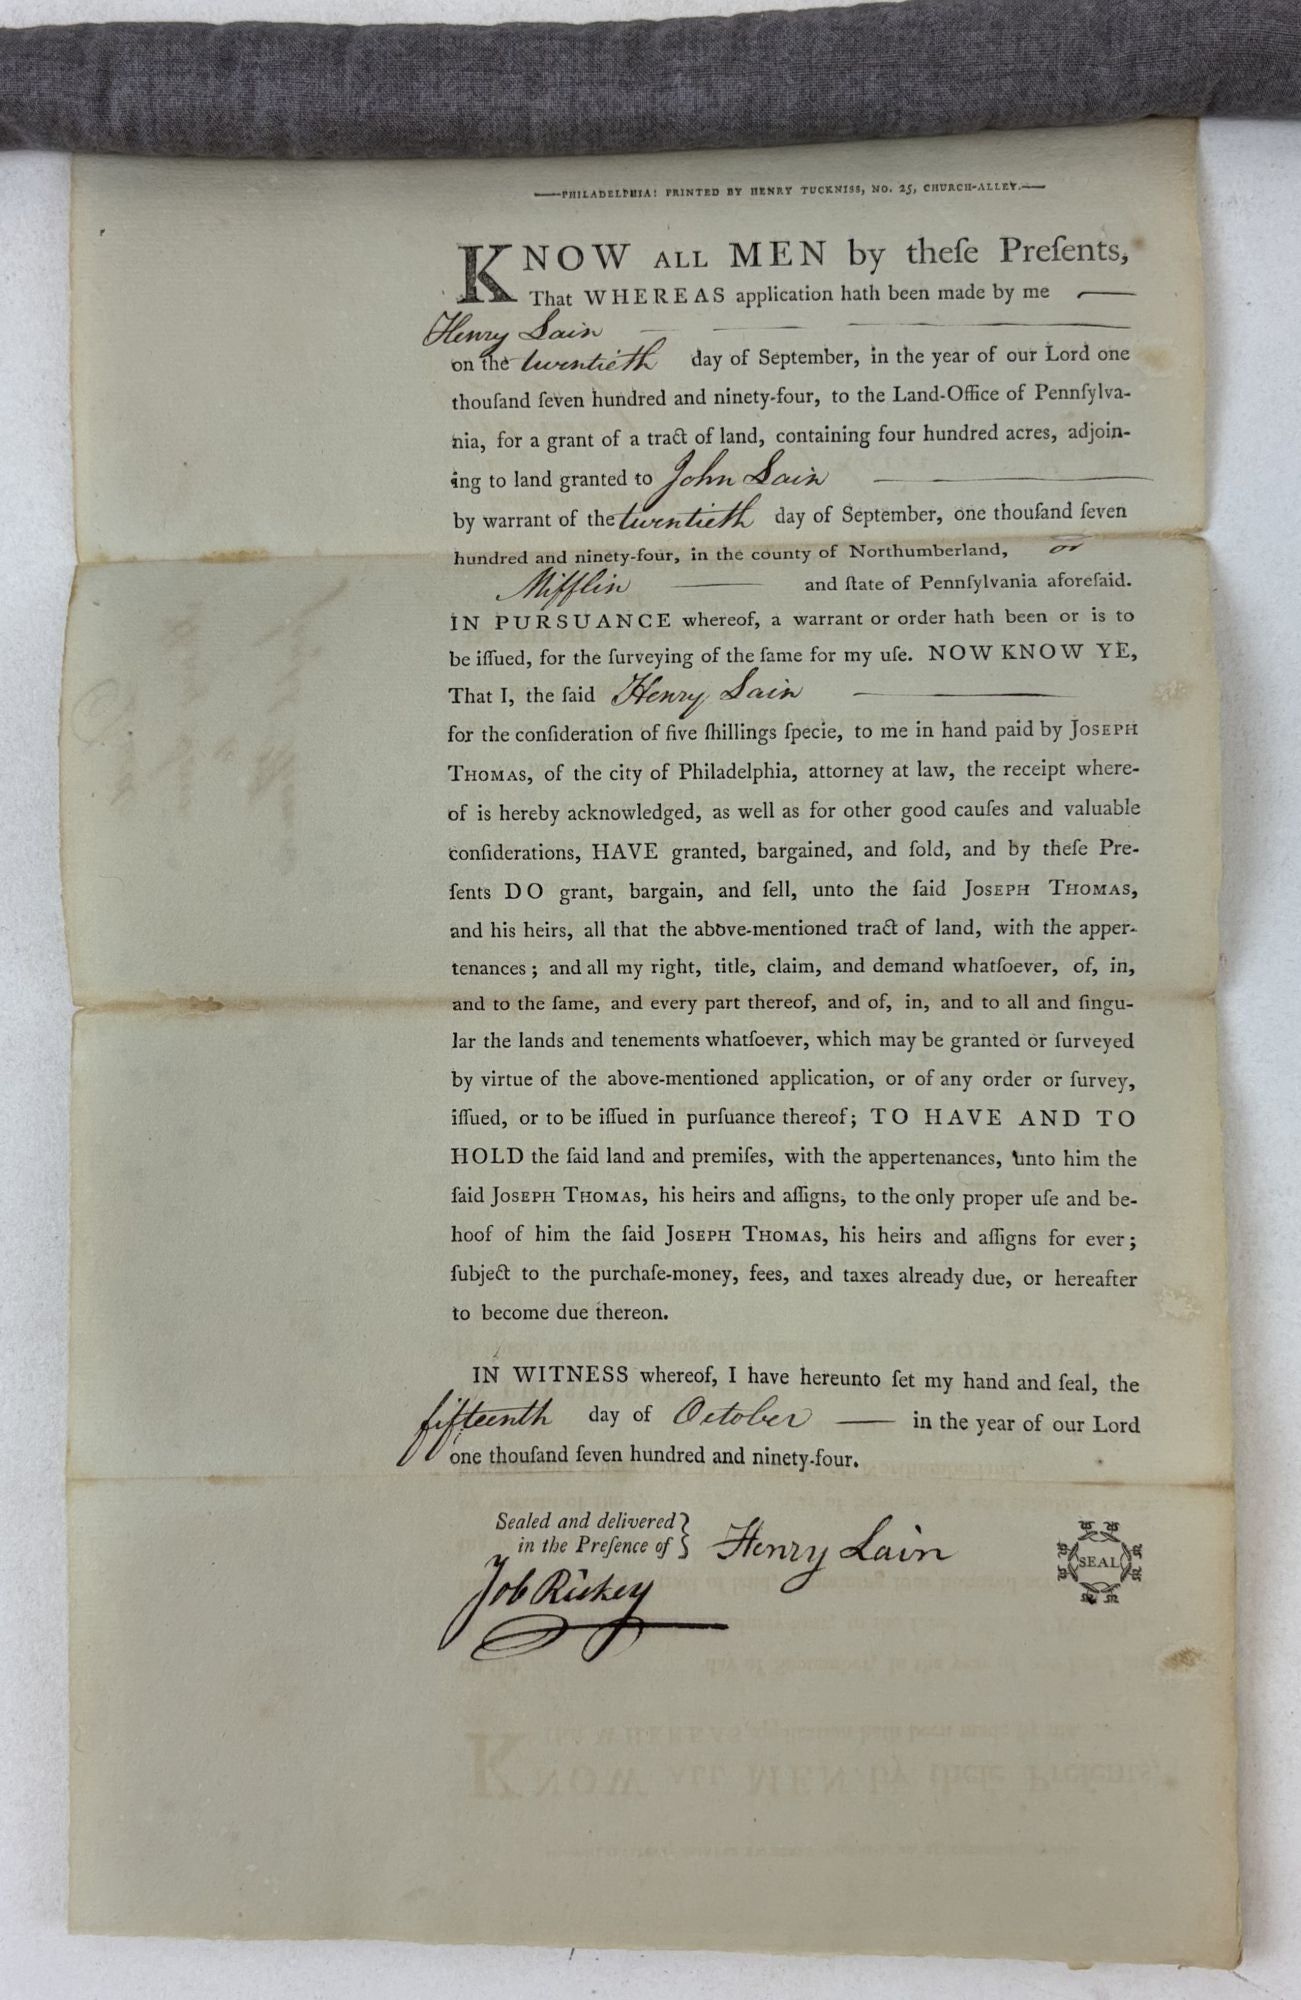 —PHILADELPHIA: PRINTED BY HENRY TUCKNISS, NO. 25, CHURCH-ALLEY.—
KNOW ALL MEN by theſe Preſents,
That WHEREAS application hath been made by me —
Henry Lain — — —
on the twentieth day of September, in the year of our Lord one
thouſand ſeven hundred and ninety-four, to the Land-Office of Pennſylva-
nia, for a grant of a tract of land, containing four hundred acres, adjoin-
ing to land granted to John Lain —
by warrant of the twentieth day of September, one thouſand ſeven
hundred and ninety-four, in the county of Northumberland, or
Mifflin — and ſtate of Pennſylvania aforeſaid.
IN PURSUANCE whereof, a warrant or order hath been or is to
be iſſued, for the ſurveying of the ſame for my uſe. NOW KNOW YE,
That I, the ſaid Henry Lain —
for the conſideration of five ſhillings ſpecie, to me in hand paid by JOSEPH
THOMAS, of the city of Philadelphia, attorney at law, the receipt where-
of is hereby acknowledged, as well as for other good cauſes and valuable
conſiderations, HAVE granted, bargained, and ſold, and by theſe Pre-
ſents DO grant, bargain, and ſell, unto the ſaid JOSEPH THOMAS,
and his heirs, all that the above-mentioned tract of land, with the apper-
tenances; and all my right, title, claim, and demand whatſoever, of, in,
and to the ſame, and every part thereof, and of, in, and to all and ſingu-
lar the lands and tenements whatſoever, which may be granted or ſurveyed
by virtue of the above-mentioned application, or of any order or ſurvey,
iſſued, or to be iſſued in purſuance thereof; TO HAVE AND TO
HOLD the ſaid land and premiſes, with the appertenances, unto him the
ſaid JOSEPH THOMAS, his heirs and aſſigns, to the only proper uſe and be-
hoof of him the ſaid JOSEPH THOMAS, his heirs and aſſigns for ever;
ſubject to the purchaſe-money, fees, and taxes already due, or hereafter
to become due thereon.
IN WITNESS whereof, I have hereunto ſet my hand and ſeal, the
fifteenth day of October — in the year of our Lord
one thouſand ſeven hundred and ninety-four.
Sealed and delivered
in the Preſence of } Henry Lain SEAL
Job Rickey